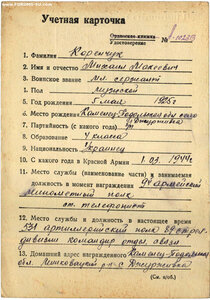 Учетная карточка
Орденская книжка №
Удостоверение
1. Фамилия Корейчук
2. Имя и отчество Михаил Яковович
3. Воинское звание мл. сержант
4. Пол мужской
5. Год рождения 5 мая 1926 г.
6. Место рождения Каменец-Подольская обл село
7. Партийность (с какого года)
8. Образование 4 класса
9. Национальность Украинец
10. С какого года в Красной Армии 1.03.1944 г.
11. Место службы (наименование части) и занимаемая
должность в момент награждения 9й армейский
Минометный полк
ст. телефонист
12. Место службы и должность в настоящее время
артиллерийский полк
дивизии командир отдел. связи
13. Домашний адрес награжденного Каменец-Подол.
обл. Миньковецкий р-н с.
(См. н/об.)